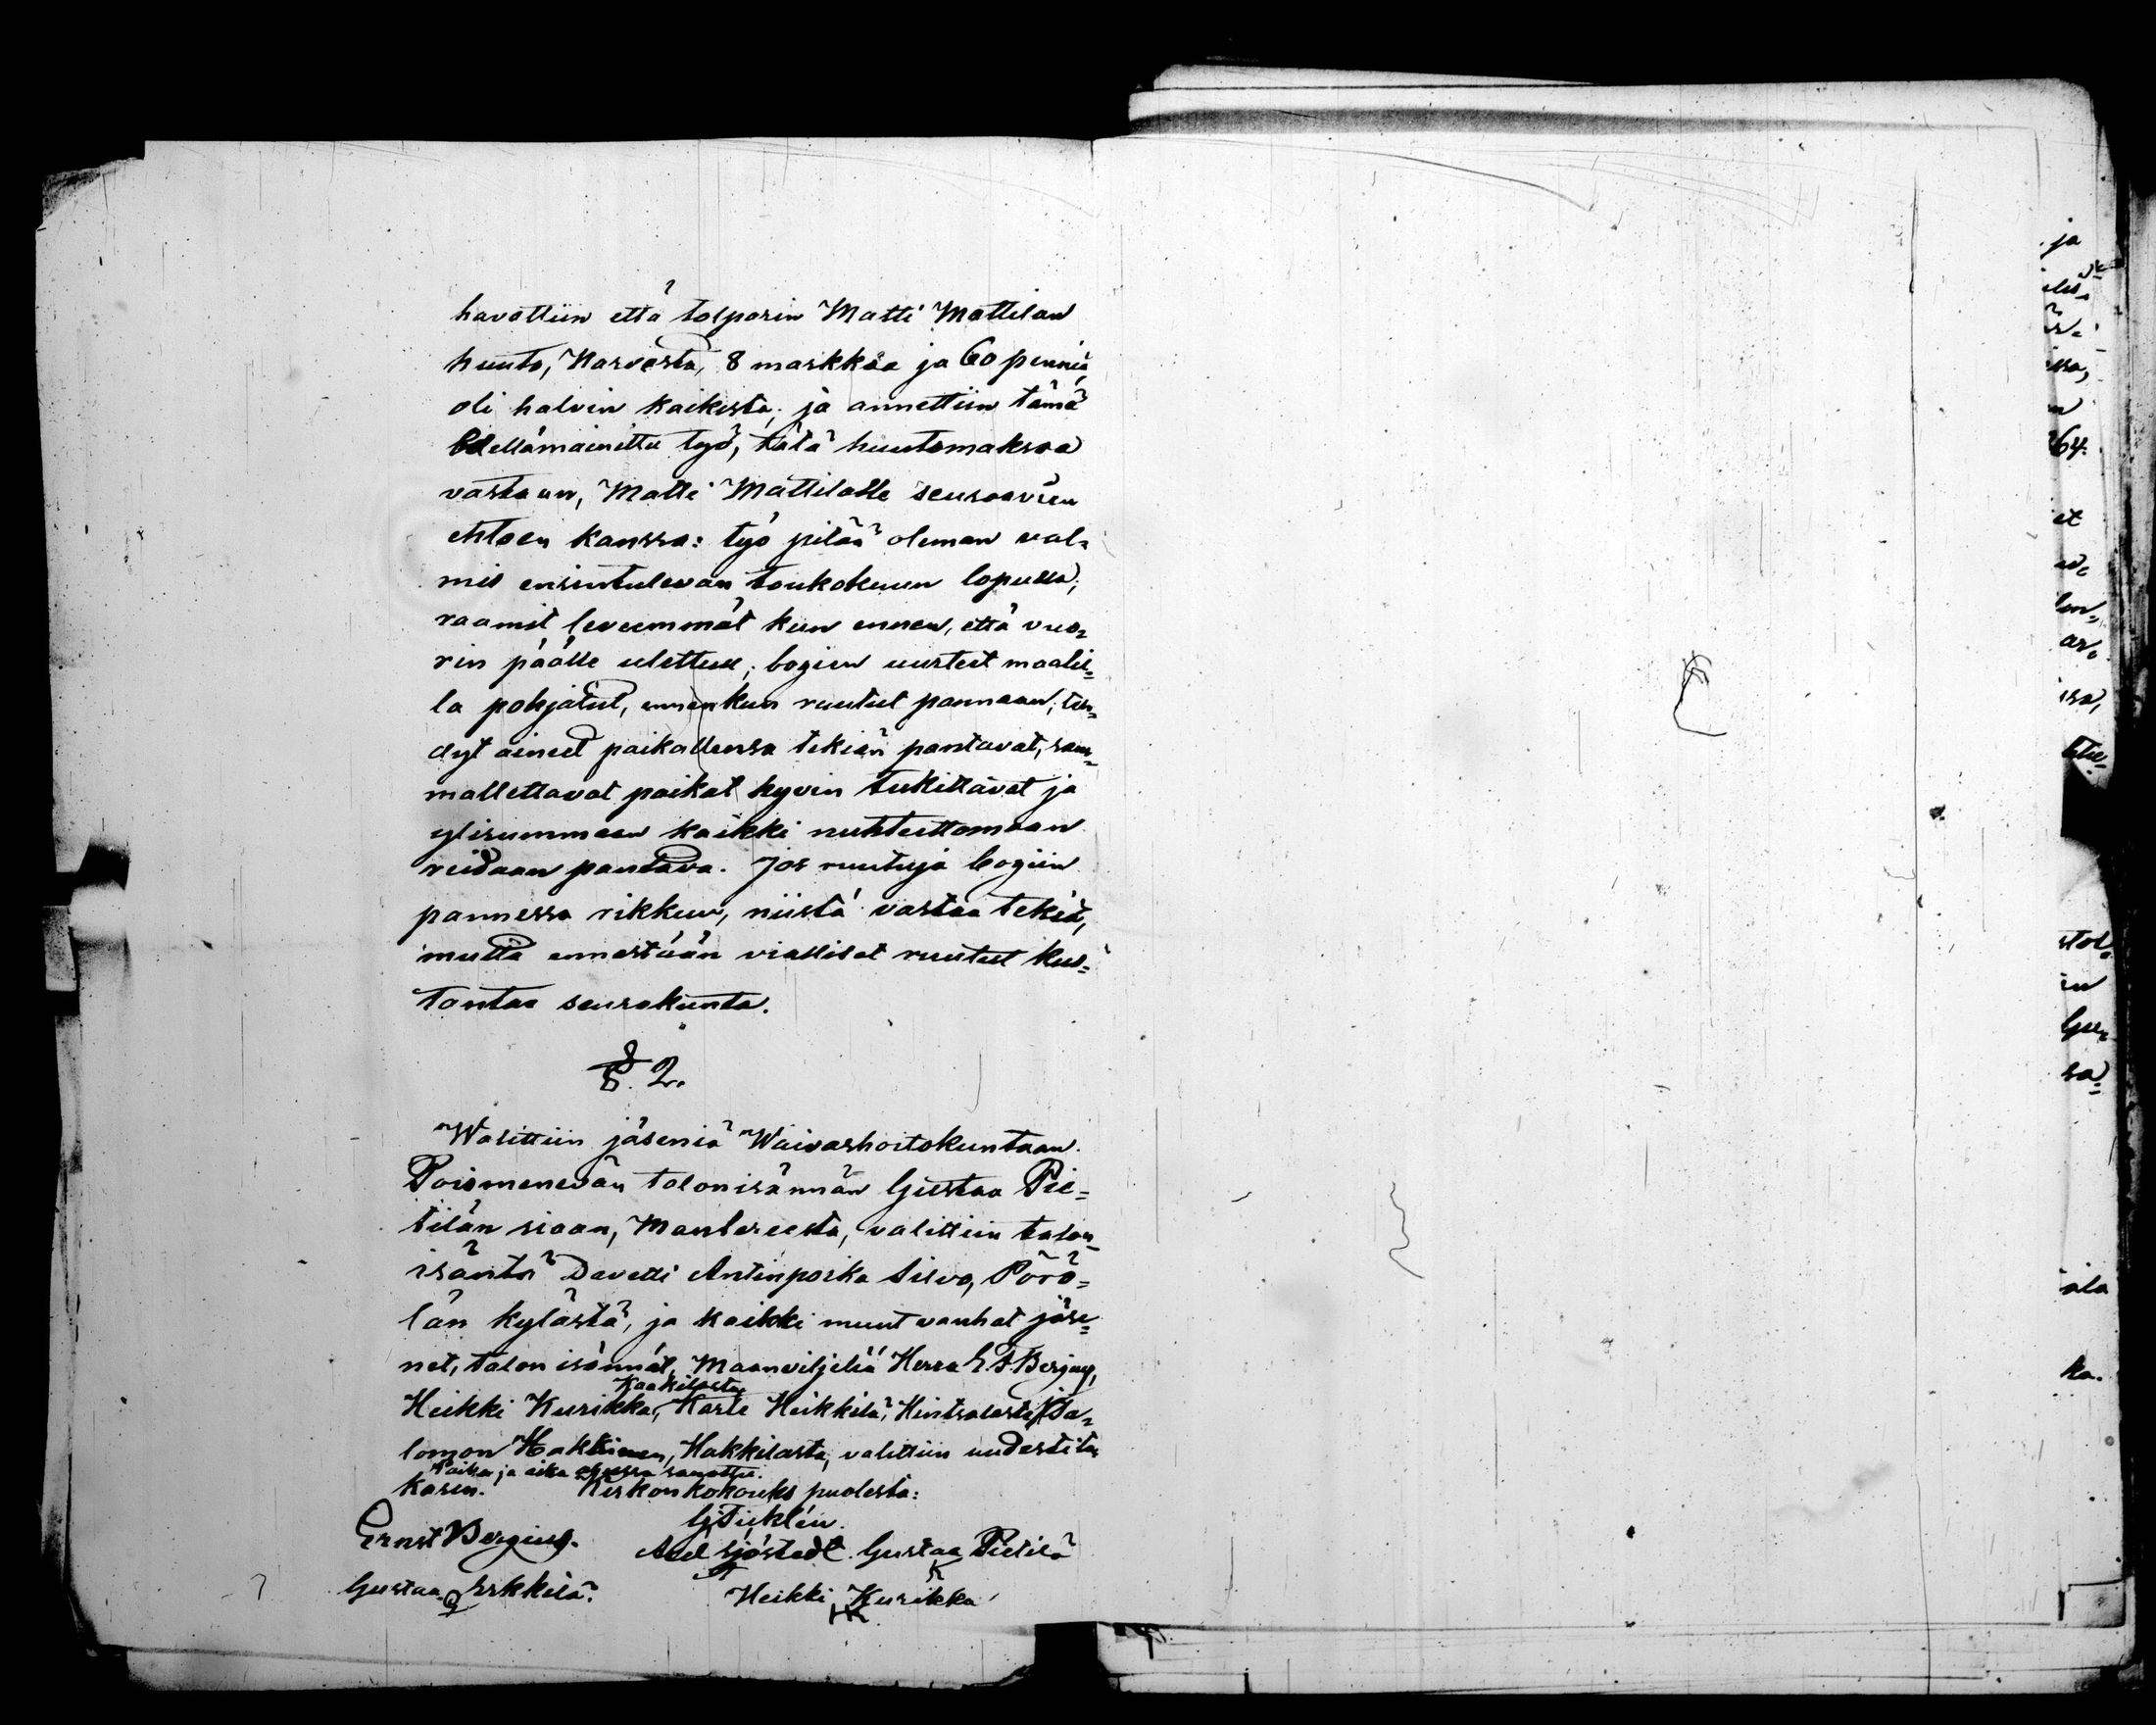 havattiin että tolparin Matti Mattilan
huuto, Karvasta, 8 markkaa ja 60 penniä,
oli halvin kaikista; ja annettiin tämä
edellämainittu työ, tätä huutomaksoa
vastaan, Matti Mattilalle seuraavien
ehtoen kanssa: työ pitää oleman val=
mis ensintulevan toukokuun lopussa;
raamit leveemmät kun ennen, että vuo=
rin päälle ulettuu; bogien uurteet maalil=
la pohjatut, ennenkun ruutut pannaan;
dyt aineet paikallensa tekiän pantavat, sam=
mallettavat paikat hyvin tukittavat ja
ylisummaan kaikki nuhteettomaan
reidaan pantava. Jos ruutuja bogiin
pannessa rikkuu, niistä vastaa tekiä,
mutta ennestään vialliset ruutut kus=
tantaa seurakunta.
§. 2.
Walittiin jäseniä Waivashoitokuntaan.
Poismenevän talonisännän Gustaa Pie=
tilän siaan, Mantereesta, valittiin talon=
isäntä Davetti Antinpoika Sirvo, Pörö=
län kylästä, ja kaikki muut vanhat jäse=
net, talon isännät, Maanviljeliä Herra
Kaakilasta
Heikki Kurikka, Kaste Heikkilä, Sa=
lomon Hakkinen, Hakkilasta, valittiin uudestita=
Paika ja aika sanottu.
kasin. Kirkonkokouks puolesta:
Ernst Bergius. Axel Sjöstedt. Gustaa Pietilä
Gustaa Erkkilä. Heikki Kurikka
HK
ja
64.
et
stol=
in
Gus=
sa=
ala
ka.